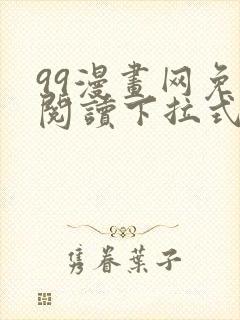 99漫畫网免
閱讀下拉式
隽眷葉子